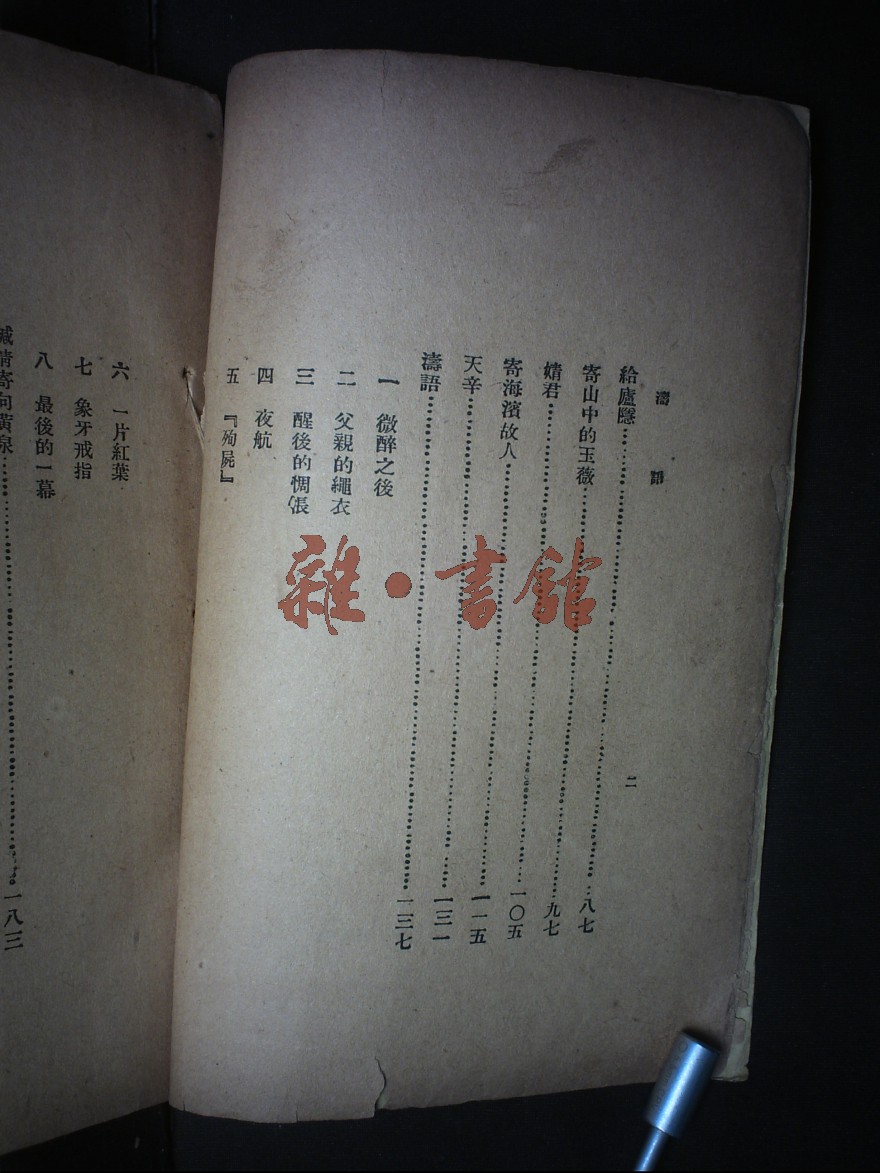 濤語
二
給廬隱……八七
寄山中的玉薇……九七
婧君……一〇五
寄海濱故人……一一五
天辛……一三一
濤語……一三七
一 微醉之後
二 父親的繩衣
三 醒後的惆悵
四 夜航
五 『殉屍』
六 一片紅葉
七 象牙戒指
八 最後的一幕
緘情寄向黃泉……一八三
雜·書館